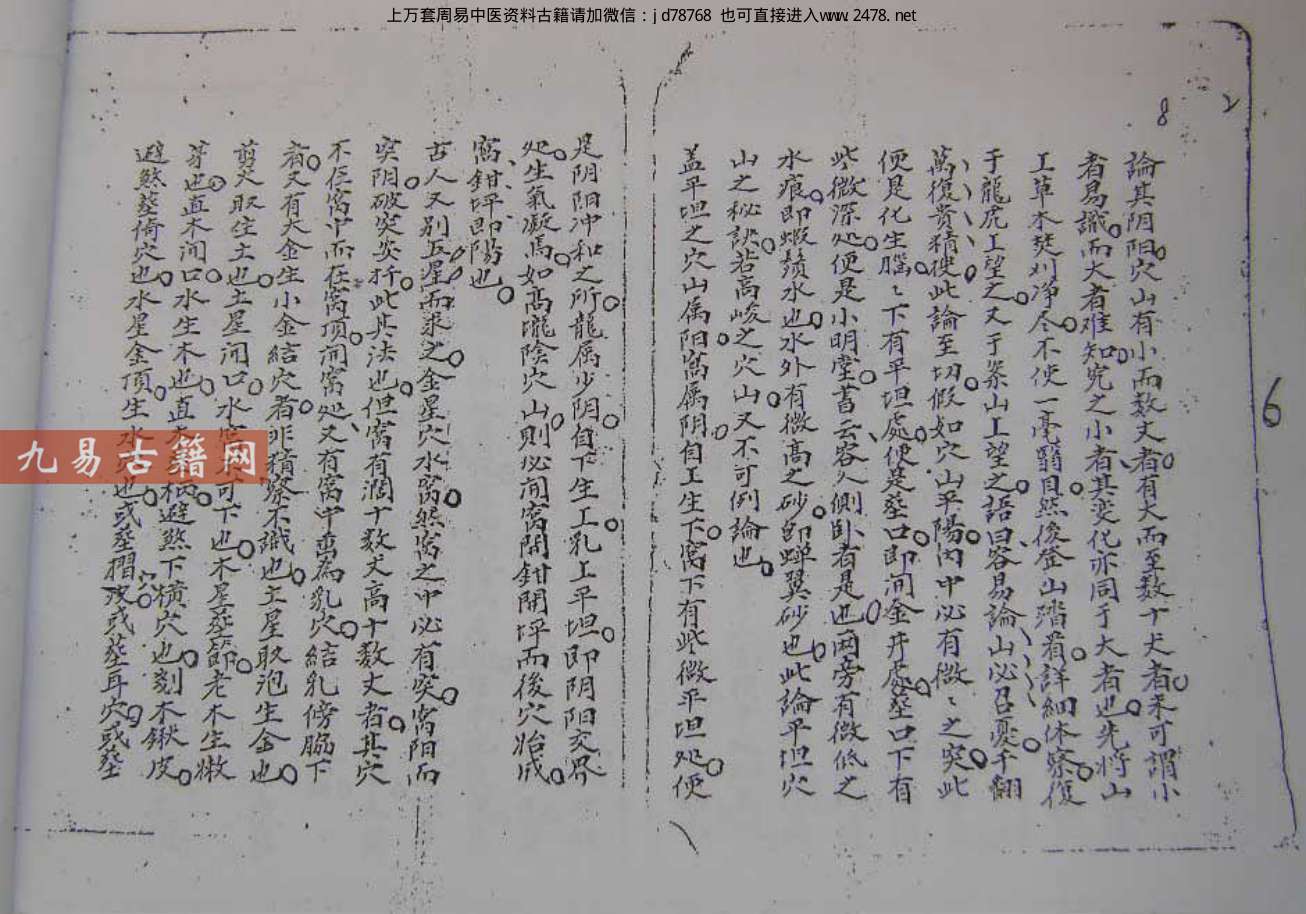 上万套周易中医资料古籍请加微信:jd78768 也可直接进入www.2478.net
2
8
6
論其阴阳穴山有小而数丈者有大而至数十丈者未可謂小
者易識而大者难知究之小者其变化亦同于大者也先将山
上草木焚刈净尽不使一毫翳目然後登山踏着詳細体察復
于龍虎上望之又于案山上望之語曰容易論山必召憂千翻
萬復贵精彼此論至切假如穴山平陽內中必有微々之突此
便是化生腦々下有平坦處便是葬口即开金井處葬口下有
些微深处便是小明堂書云容人側卧者是也兩旁有微低之
水痕即蝦鬚水也水外有微高之砂即蝉翼砂也此論平坦穴
山之秘訣若高峻之穴山又不可例論也
盖平坦之穴山属阳窩属阴自上生下窩下有些微平坦处便
是阴阳冲和之所龍属少阴自下生上乳上平坦即阴阳交界
处生氣凝焉如高壠陰穴山則必開窩開鉗開坪而後穴始成
窩鉗坪即陽也
古人又别五星而求之金星穴水窩然窩之中必有突窩阳而
突阴破突安扦此其法也但窩有濶十数丈高十数丈者其穴
不在窩中而在窩頂開窩处又有窩中高為乳穴結乳傍脇下
者又有大金生小金結穴者非精察不識也土星取泡生金也
剪火取住土也土星開口水窩不可下也木星葬節老木生嫩
芽也直木開口水生木也直木避煞下横穴也剝木鍬皮
避煞葬倚穴也水星金頂生水穴也或葬摺或葬耳穴或葬
九易古籍网